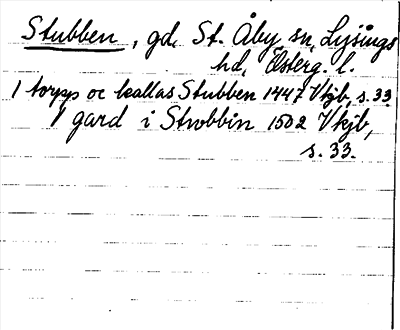 Stubben, gd, St. Åby sn, Lysings
hd, Österg. l.
1 torpp oc kallas Stubben 1447 Vkjb, s. 33.
1 gard i Strobbin 1502 Vkjb,
s. 33.